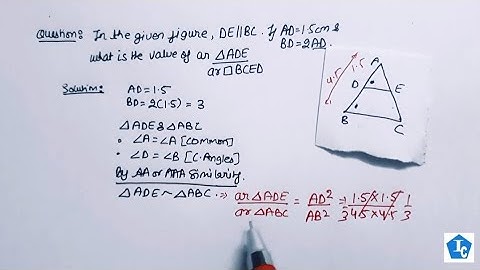 Question: In the given figure, DE||BC. If AD=1.5cm &
BD=2AD.
what is the value of ar △ADE
ar □BCED
Solution: AD=1.5
BD=2(1.5)=3
△ADE & △ABC
• ∠A=∠A [Common]
• ∠D=∠B [C.Angles]
By AA or AAA Similarity.
△ADE ~ △ABC ⇒ ar△ADE = AD² ⇒ 1.5×1.5 1
ar△ABC AB² 3 4.5×4.5 3
4.5
1.5
A
D
E
B
C